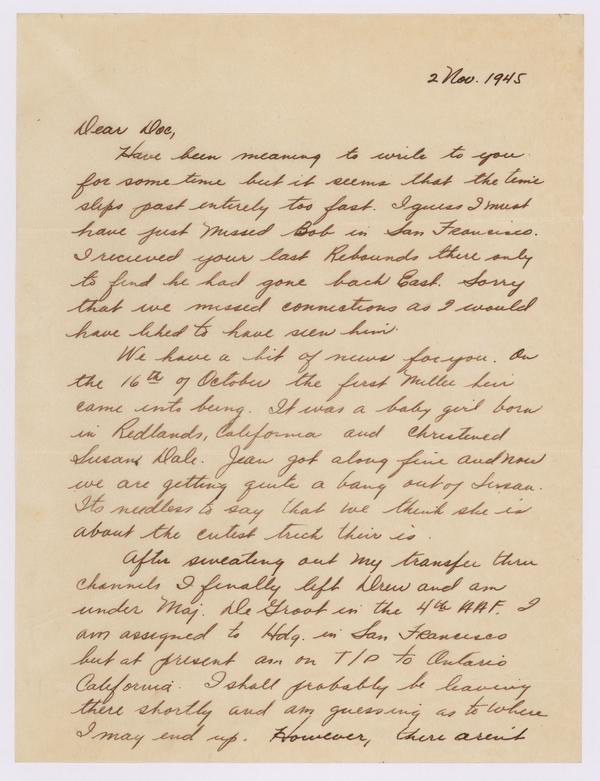 2 Nov. 1945
Dear Doc,
Have been meaning to write to you
for some time but it seems that the time
slips past entirely too fast. I guess I must
have just missed Bob in San Francisco.
I recieved your last Rebounds there only
to find he had gone back East. Sorry
that we missed connections as I would
have liked to have seen him.
We have a bit of news for you. On
the 16th of October the first Miller heir
came into being. It was a baby girl born
in Redlands, California and christened
Susan Dale. Jean got along fine and now
we are getting quite a bang out of Susan.
Its needless to say that we think she is
about the cutest trick their is.
After sweating out my transfer thru
channels I finally left Drew and am
under Maj. De Groot in the 4th AAF. I
am assigned to Hdq. in San Francisco
but at present am on T/D to Ontario
California. I shall probably be leaving
there shortly and am guessing as to where
I may end up. However, there aren't